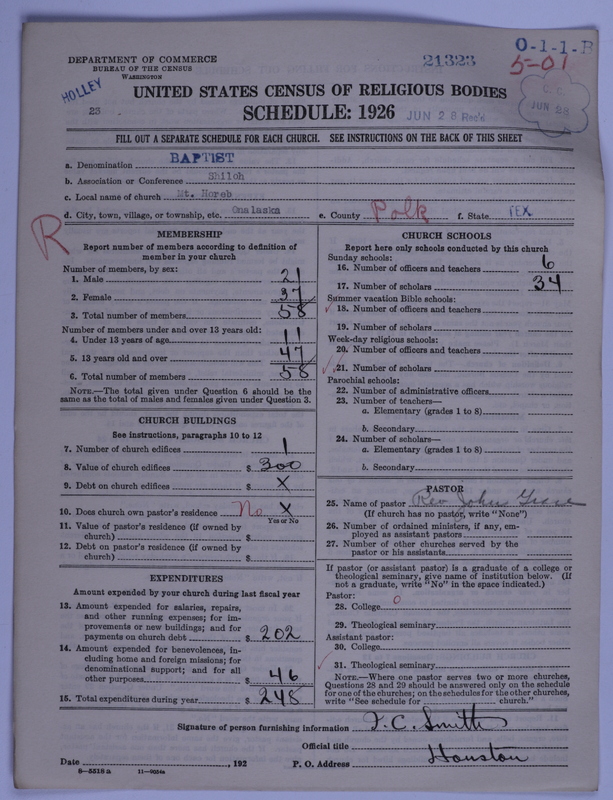 DEPARTMENT OF COMMERCE
BUREAU OF THE CENSUS
WASHINGTON
HOLLEY
23
21323
O-1-1-B
5-01
UNITED STATES CENSUS OF RELIGIOUS BODIES
SCHEDULE: 1926
JUN 28 Rec'd
C. C.
JUN 28
FILL OUT A SEPARATE SCHEDULE FOR EACH CHURCH. SEE INSTRUCTIONS ON THE BACK OF THIS SHEET
a. Denomination BAPTIST
b. Association or Conference Shiloh
c. Local name of church Mt. Horeb
d. City, town, village, or township, etc. Onalaska e. County Polk f. State TEX
R
MEMBERSHIP
Report number of members according to definition of
member in your church
Number of members, by sex:
1. Male 21
2. Female 37
3. Total number of members 58
Number of members under and over 13 years old:
4. Under 13 years of age 11
5. 13 years old and over 47
6. Total number of members 58
NOTE.—The total given under Question 6 should be the
same as the total of males and females given under Question 3.
CHURCH BUILDINGS
See instructions, paragraphs 10 to 12
7. Number of church edifices 1
8. Value of church edifices $ 300
9. Debt on church edifices $ X
10. Does church own pastor's residence No X
Yes or No
11. Value of pastor's residence (if owned by
church) $
12. Debt on pastor's residence (if owned by
church) $
EXPENDITURES
Amount expended by your church during last fiscal year
13. Amount expended for salaries, repairs,
and other running expenses; for im-
provements or new buildings; and for
payments on church debt $ 202
14. Amount expended for benevolences, in-
cluding home and foreign missions; for
denominational support; and for all
other purposes $ 46
15. Total expenditures during year $ 248
CHURCH SCHOOLS
Report here only schools conducted by this church
Sunday schools:
16. Number of officers and teachers 6
17. Number of scholars 34
Summer vacation Bible schools:
18. Number of officers and teachers
19. Number of scholars
Week-day religious schools:
20. Number of officers and teachers
21. Number of scholars
Parochial schools:
22. Number of administrative officers
23. Number of teachers—
a. Elementary (grades 1 to 8)
b. Secondary
24. Number of scholars—
a. Elementary (grades 1 to 8)
b. Secondary
PASTOR
25. Name of pastor Rev John
(If church has no pastor, write "None")
26. Number of ordained ministers, if any, em-
ployed as assistant pastors
27. Number of other churches served by the
pastor or his assistants
If pastor (or assistant pastor) is a graduate of a college or
theological seminary, give name of institution below. (If
not a graduate, write "No" in the space indicated.)
Pastor:
28. College 0
29. Theological seminary
Assistant pastor:
30. College
31. Theological seminary
NOTE.—Where one pastor serves two or more churches,
Questions 28 and 29 should be answered only on the schedule
for one of the churches; on the schedules for the other churches,
write "See schedule for church."
Signature of person furnishing information F. C. Smith
Official title
Date , 192 P. O. Address Houston
8-5518a 11-9054a